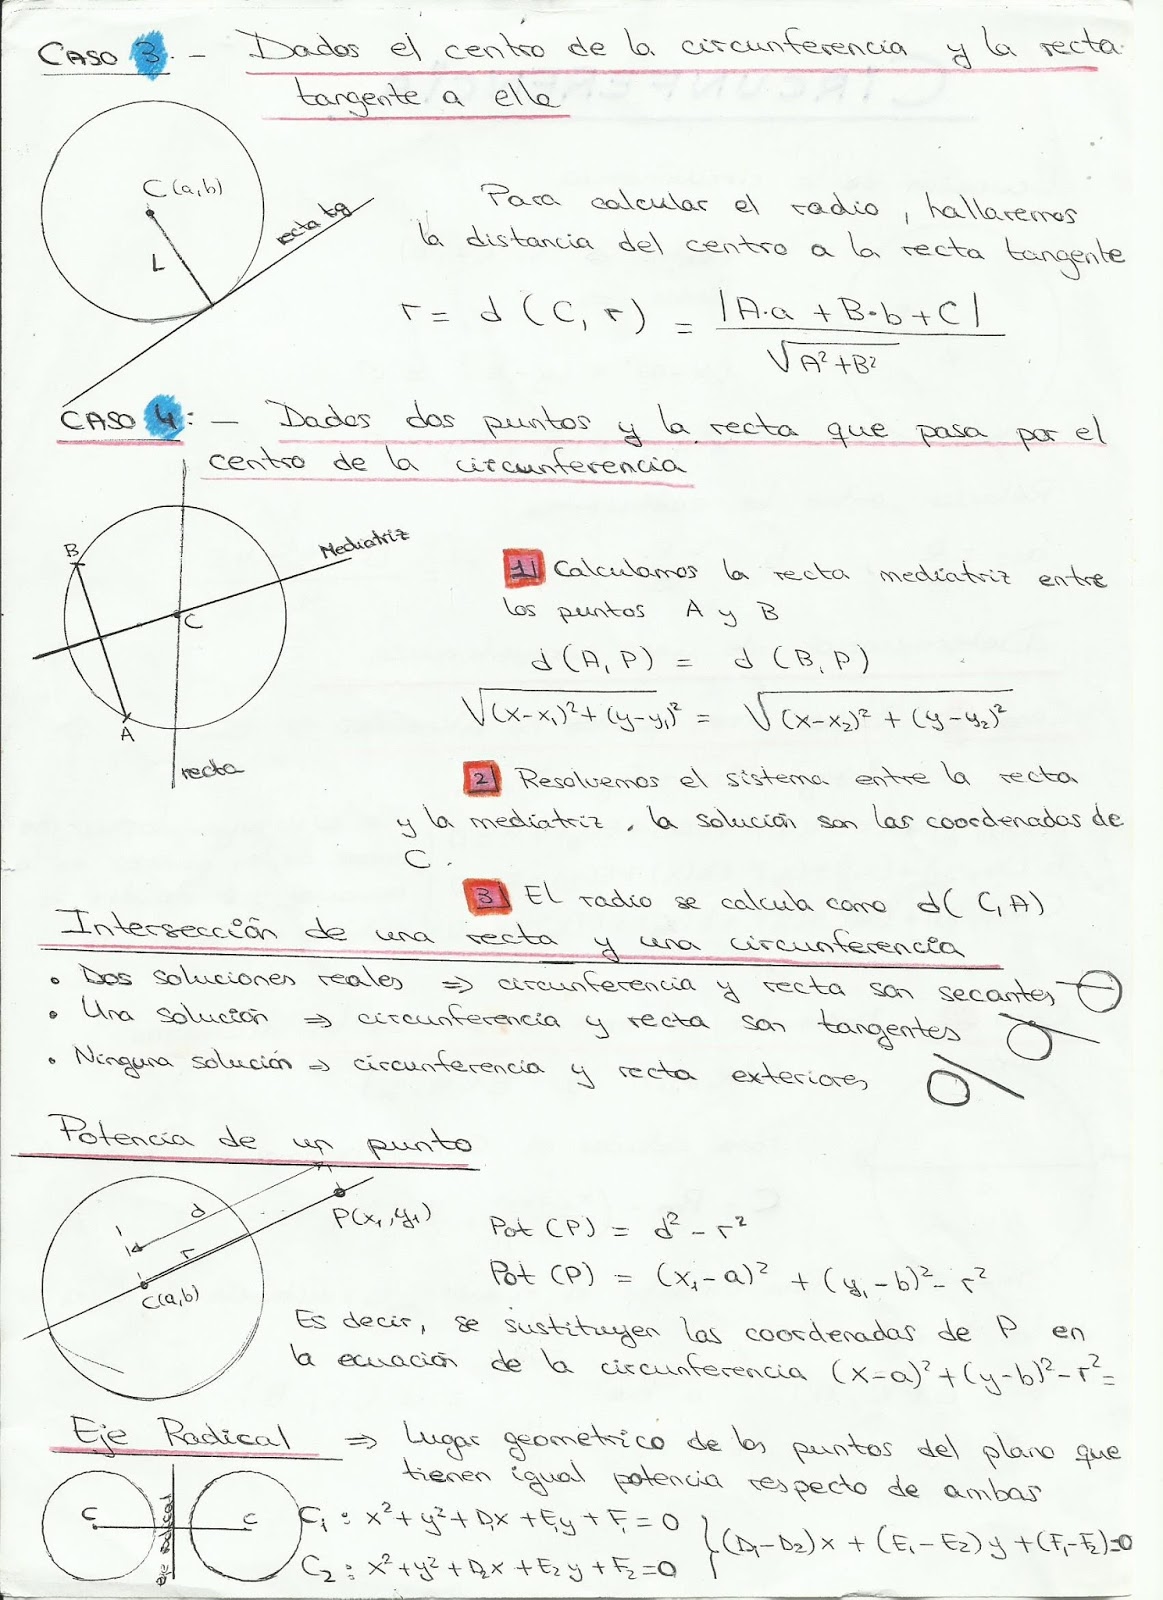 CASO 3.- Dados el centro de la circunferencia y la recta
tangente a ella
C(a,b)
L
recta tg
Para calcular el radio, hallaremos
la distancia del centro a la recta tangente
r = d (C, r) = |A·a + B·b + C| / √A²+B²
CASO 4: - Dados dos puntos y la recta que pasa por el
centro de la circunferencia
B
Mediatriz
C
A
recta
1) Calculamos la recta mediatriz entre
los puntos A y B
d (A, P) = d (B, P)
√(x-x₁)²+(y-y₁)² = √(x-x₂)² + (y-y₂)²
2 Resolvemos el sistema entre la recta
y la mediatriz, la solución son las coordenadas de
C.
3 El radio se calcula como d( C, A)
Intersección de una recta y una circunferencia
• Dos soluciones reales ⇒ circunferencia y recta son secantes
• Una solución ⇒ circunferencia y recta son tangentes
• Ninguna solución ⇒ circunferencia y recta exteriores
Potencia de un punto
d
r
P(x₁,y₁)
C(a,b)
Pot (P) = d² - r²
Pot (P) = (x₁-a)² + (y₁-b)² - r²
Es decir, se sustituyen las coordenadas de P en
la ecuación de la circunferencia (x-a)²+(y-b)²-r²=
Eje Radical ⇒ Lugar geométrico de los puntos del plano que
tienen igual potencia respecto de ambas
C
eje radical
C
C₁ : x²+y²+D₁x+E₁y+F₁=0
C₂ : x²+y²+D₂x+E₂y+F₂=0
(D₁-D₂)x + (E₁-E₂)y + (F₁-F₂)=0